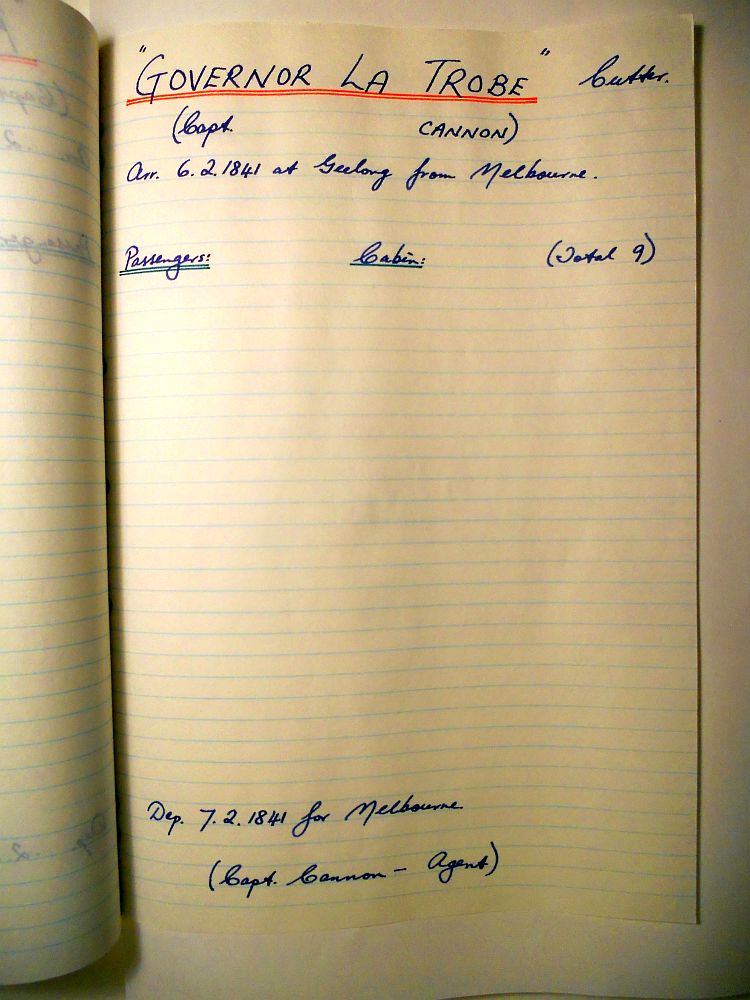 "GOVERNOR LA TROBE" Cutter.
(Capt. CANNON)
Arr. 6.2.1841 at Geelong from Melbourne.
Passengers: Cabin: (Total 9)
Dep. 7.2.1841 for Melbourne
(Capt. Cannon - Agent)